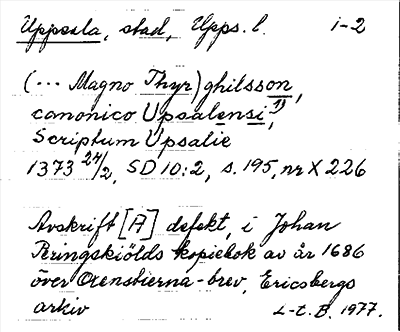 Uppsala, stad, Upps. l. i-2
(... Magno Thyr)ghilsson,
canonico Upsalensi 1),
Scriptum Upsalie
1373 24/2, SD 10:2, s. 195, nr X 226
Avskrift [A] defekt, i Johan
Peringskiölds kopiebok av år 1686
över Oxenstierna-brev, Ericsbergs
arkiv L-t. B. 1977.